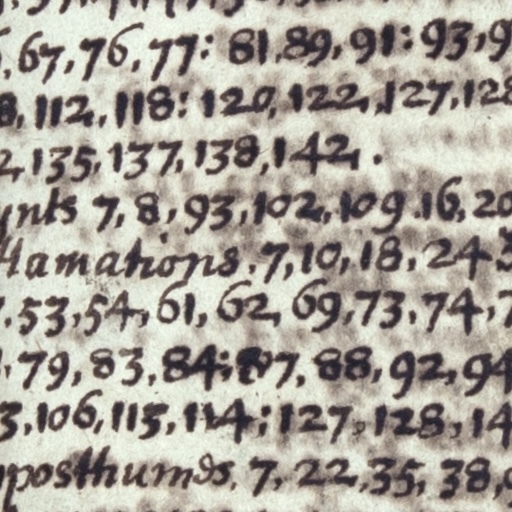 67, 76, 77: 81, 89, 91: 93, 9
8, 112, 118: 120, 122, 127, 128
2, 135, 137, 138, 142.
nts 7, 8, 93, 102, 109. 16, 20
lamations. 7, 10, 18, 24
. 53, 54, 61, 62, 69, 73, 74, 7
. 79, 83, 84; 87, 88, 92, 94
3, 106, 113, 114; 127, 128, 14
posthumos. 7, 22, 35, 38,